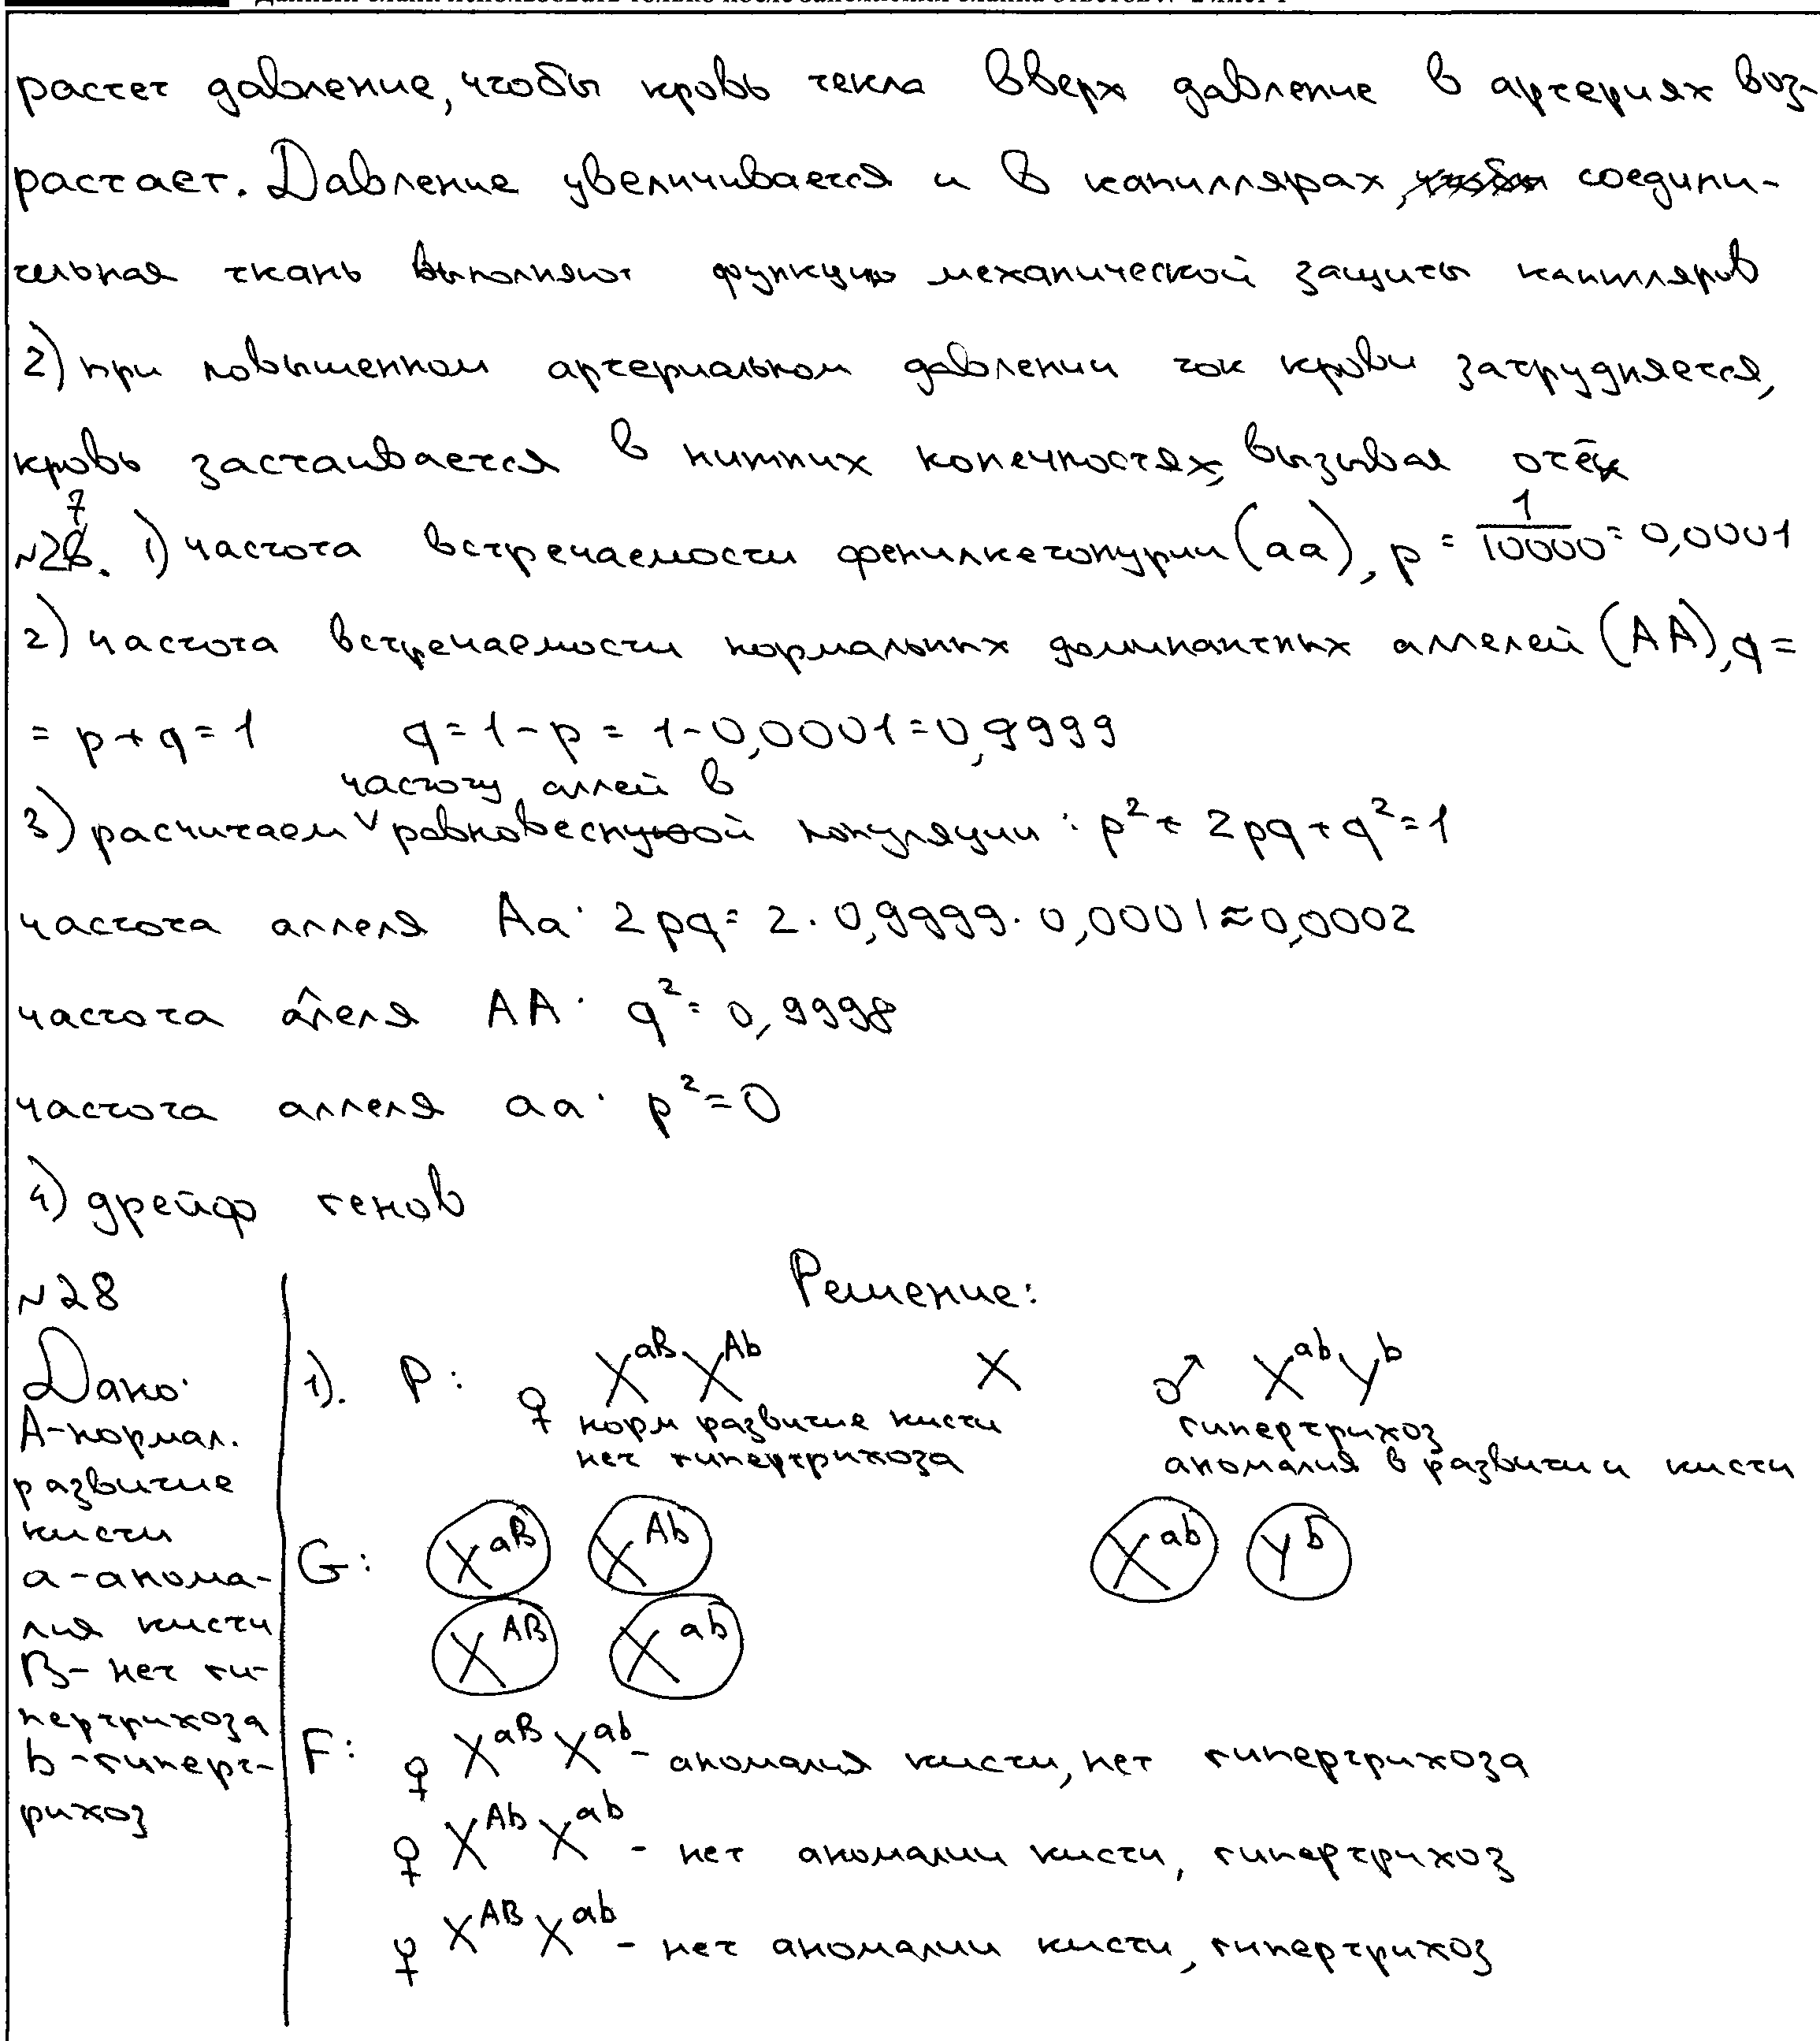 растет давление, чтобы кровь текла вверх давление в артериях воз-
растает. Давление увеличивается и в капиллярах, соедини-
тельная ткань выполняют функцию механической защиты капиляров
2) при повышенном артериальном давлении ток крови затрудняется,
кровь застаивается в нижних конечностях, вызывая отёк
№27. 1) частота встречаемости фенилкетонурии (aa), p = 1/10000 = 0,0001
2) частота встречаемости нормальных доминантных аллелей (AA), q =
= p + q = 1 q = 1 - p = 1 - 0,0001 = 0,9999
частоту аллей в
3) расчитаем ∨ равновесной популяции: p² + 2pq + q² = 1
частота аллеля Aa: 2pq = 2 · 0,9999 · 0,0001 ≈ 0,0002
частота алеля AA: q² = 0,9998
частота аллеля aa: p² = 0
4) дрейф генов
№28
Решение:
Дано:
A-нормал.
развитие
кисти
a-анома-
лия кисти
B- нет ги-
пертрихоза
b-гиперт-
рихоз
1). P: ♀ XᵃᴮXᴬᵇ X ♂ XᵃᵇYᵇ
норм развитие кисти гипертрихоз
нет гипертрихоза аномалия в развитии кисти
G: Xᵃᴮ Xᴬᵇ Xᵃᵇ Yᵇ
Xᴬᴮ Xᵃᵇ
F: ♀ XᵃᴮXᵃᵇ - аномалия кисти, нет гипертрихоза
♀ XᴬᵇXᵃᵇ - нет аномалии кисти, гипертрихоз
♀ XᴬᴮXᵃᵇ - нет аномалии кисти, гипертрихоз